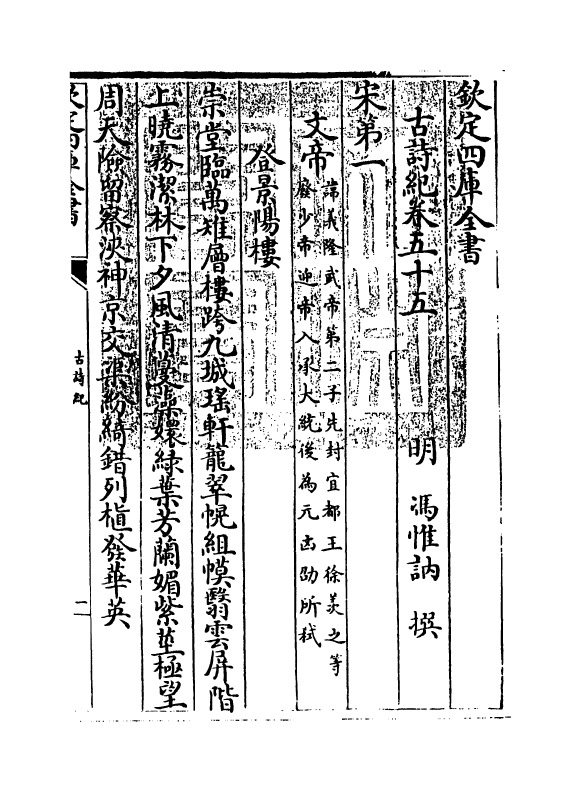 欽定四庫全書
古詩紀卷五十五　明　馮惟訥　撰
宋第一
文帝
諱義隆武帝第二子先封宜都王徐羡之等
廢少帝迎帝入承大統後為元凶劭所弑
登景陽樓
崇堂臨萬雉層樓跨九城瑤軒龍翠幌組幙翳雲屏階
上曉霧潔林下夕風清蔓藻嬛綠葉芳蘭媚紫莖極望
周天險留察浹神京交渠紛綺錯列植發華英
古詩紀